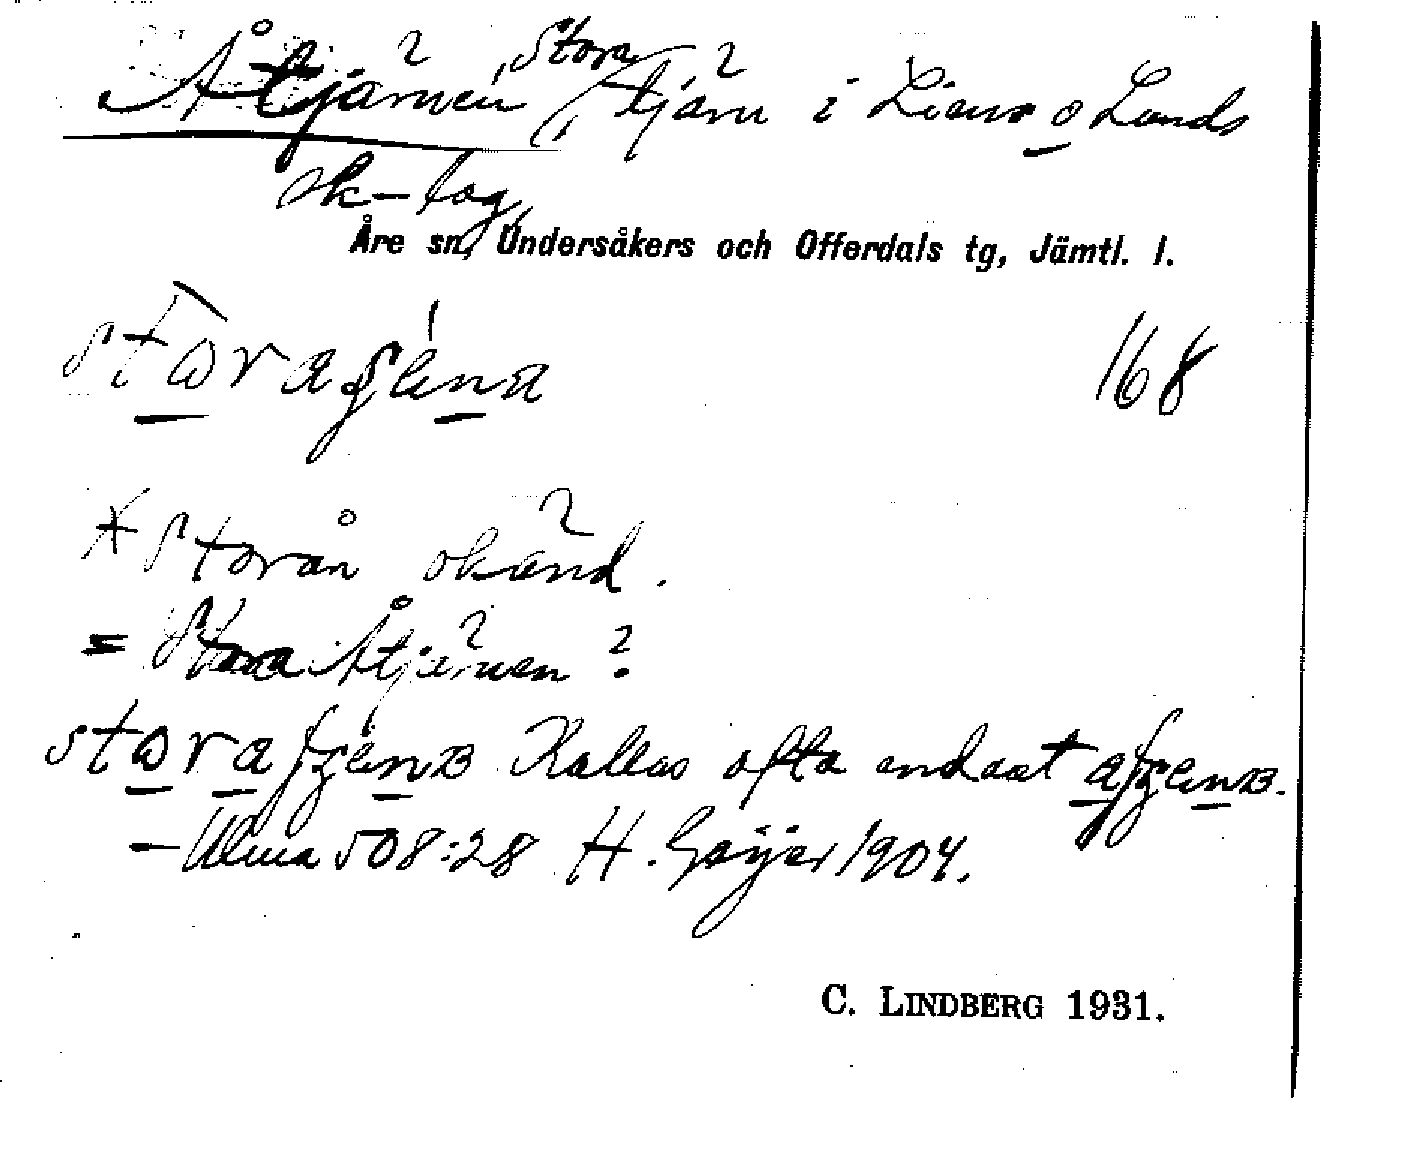 Åtjärnen, Stora, tjärn i Liens o Lunds
sk-lag,
Åre sn, Undersåkers och Offerdals tg, Jämtl. l.
168
* Storån okänd.
= Stora Åtjärnen ?
Kallas ofta endast
– Ulma 508:28 H. Geijer 1904.
C. LINDBERG 1931.